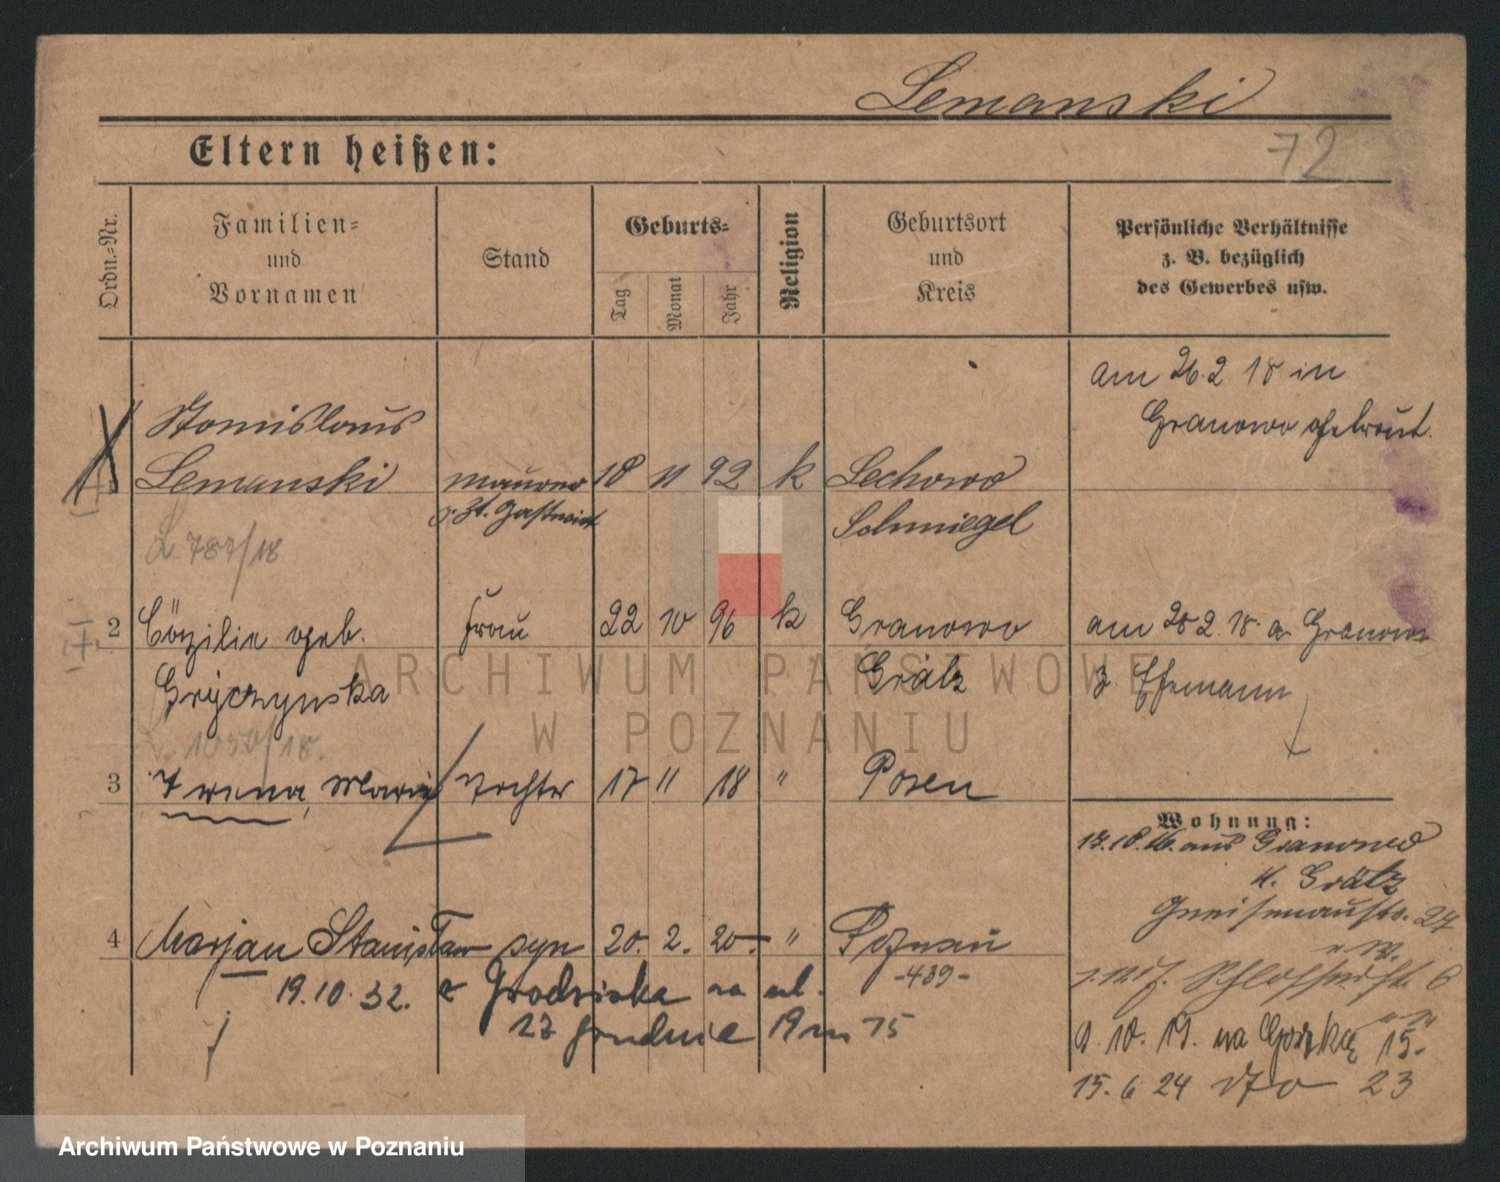 Lemanski
72
Eltern heißen:
Ordn.-Nr.
Familien-
und
Vornamen
Stand
Geburts-
Tag
Monat
Jahr
Religion
Geburtsort
und
Kreis
Persönliche Verhältnisse
z. B. bezüglich
des Gewerbes usw.
am 26.2 18 in
Granowo getraut.
Stanislaus
Lemanski Maurer 18 11 92 k Lechowo
z. Zt. Gastwirt Schmiegel
L. 787/18
2 Cäzilie geb. Frau 22 10 96 k Granowo am 28 2. 18. a Granowo
Gryczynska Grätz z. Ehemann
1050/18.
3 Irena, Maria Tochter 17 11 18 " Posen
Wohnung:
17.18.16. aus Granowo
K. Grätz
Gneisenaustr. 27
4 Marjan Stanisław syn 20. 2. 20. " Poznań
-439-
Schlosserstr. 6
19.10.32. z Grodziska na ul.
27 Grudnia 19 m 15
9. 10. 19. na Gorzką 15.
15. 6 24 dto 23
ARCHIWUM PAŃSTWOWE
W POZNANIU
Archiwum Państwowe w Poznaniu